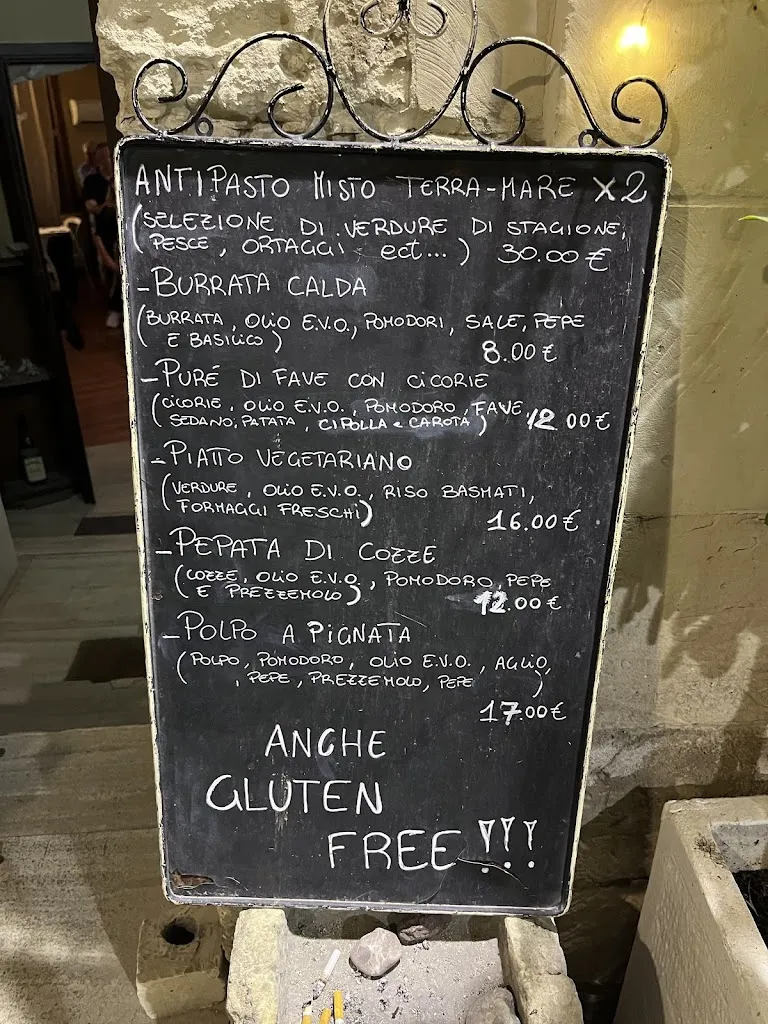 ANTIPASTO MISTO TERRA-MARE X2
(SELEZIONE DI VERDURE DI STAGIONE,
PESCE, ORTAGGI ect...) 30.00 €
-BURRATA CALDA
(BURRATA, OLIO E.V.O., POMODORI, SALE, PEPE
E BASILICO)
8.00 €
-PURÉ DI FAVE CON CICORIE
(CICORIE, OLIO E.V.O., POMODORO, FAVE,
SEDANO, PATATA, CIPOLLA e CAROTA) 12 00 €
-PIATTO VEGETARIANO
(VERDURE, OLIO E.V.O., RISO BASMATI,
FORMAGGI FRESCHI)
16.00 €
-PEPATA DI COZZE
(COZZE, OLIO E.V.O., POMODORO, PEPE
E PREZZEMOLO)
12.00 €
-POLPO A PIGNATA
(POLPO, POMODORO, OLIO E.V.O., AGLIO,
, PEPE, PREZZEMOLO, PEPE )
17.00 €
ANCHE
GLUTEN
FREE !!!